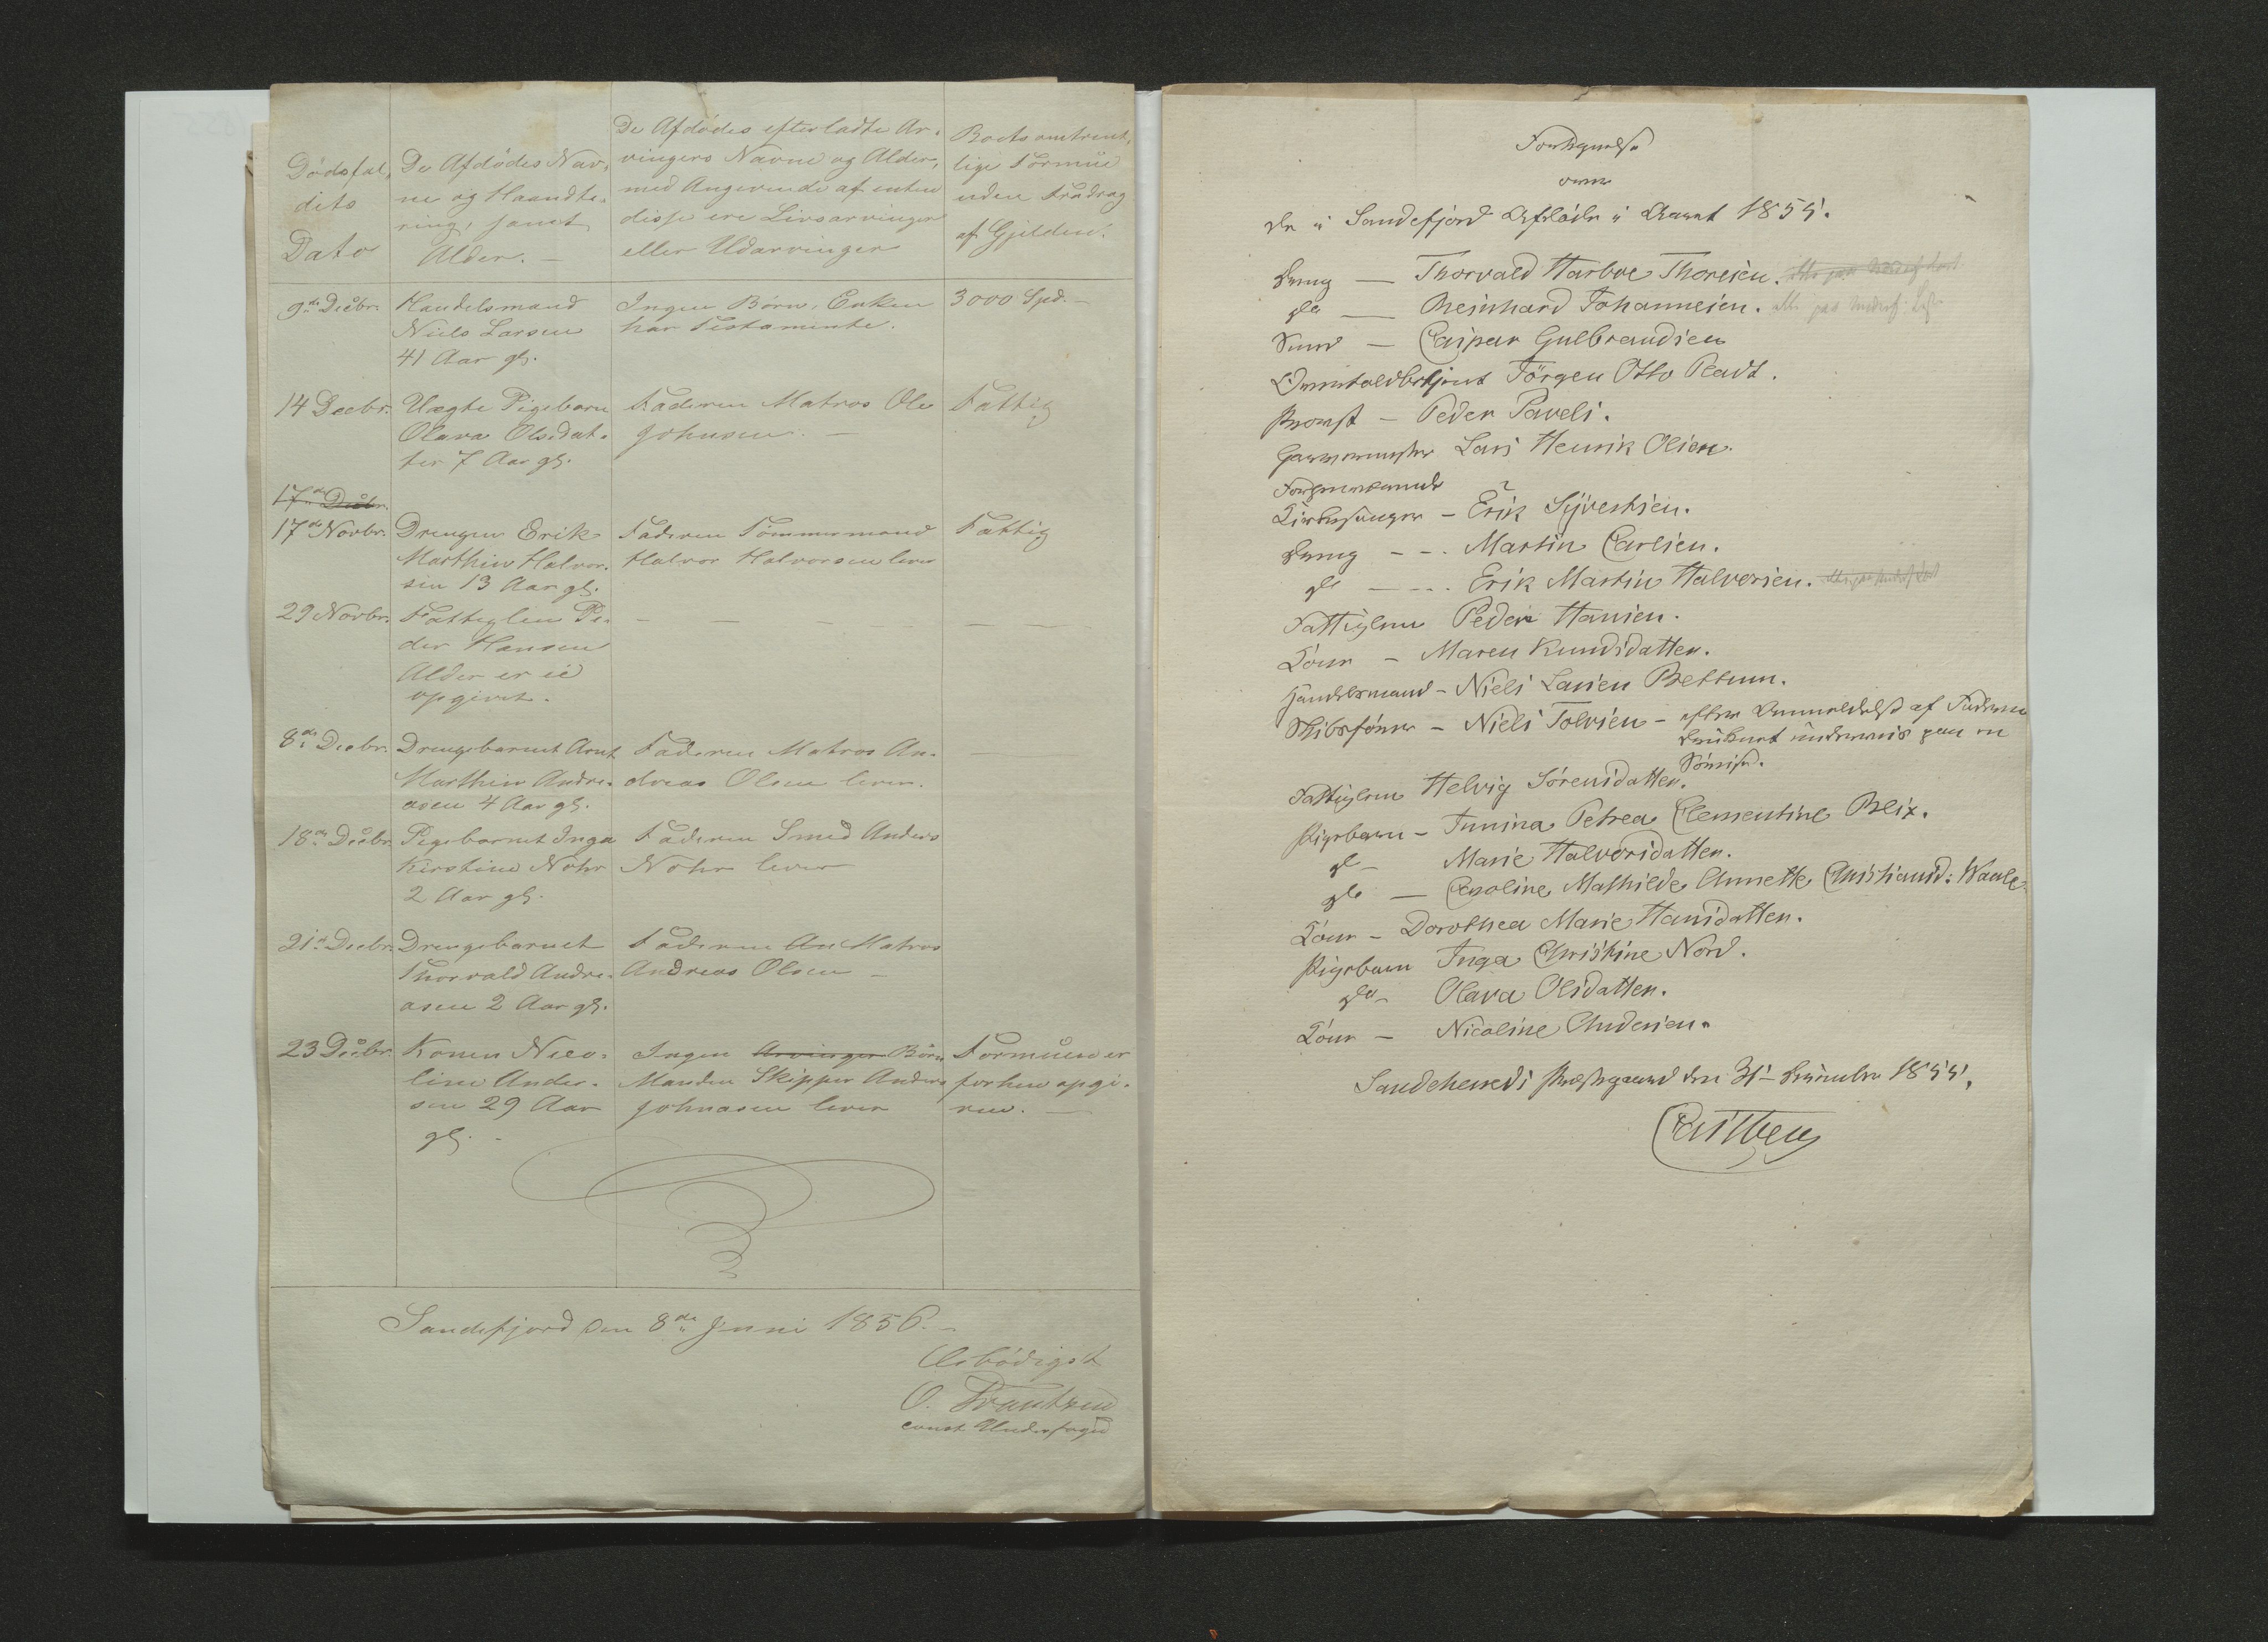 Dødsfal,
dets
Dato
De Afdødes Nav,
ne og Haandte,
ring, samt
Alder. —
De Afdødes efterladte Ar,
vingers Navne og Alder,
med Angivende af enten
disse ere Livsarvinger
eller Udarvinger
Boets omtrent,
lige Formue
uden Fradrag
af Gjelden.
9de Decbr.
Handelsmand
Niels Larsen
41 Aar gl.
Ingen Børn. Enken
har Testamente.
3000 Spd. —
14 Decbr.
Uægte Pigebarn
Olava Olsdat-
ter 7 Aar gl.
Faderen Matros Ole
Johnsen. —
Fattig
17de Decbr.
17de Novbr.
Drengen Erik
Marthin Halvor-
sen 13 Aar gl.
Faderen Tømmermand
Halvor Halvorsen lever
Fattig
29 Novbr.
Fattiglem Pe-
der Hansen
Alder er ei
opgivet.
— — — — — —
8de Decbr.
Drengebarnet Arnt
Marthin Andre-
asen 4 Aar gl.
Faderen Matros An-
dreas Olsen lever.
—
18de Decbr.
Pigebarnet Inga
Kirstine Nohr
2 Aar gl.
Faderen Smed Anders
Nohr lever
21de Decbr.
Drengebarnet
Thorvald Andre-
asen 2 Aar gl.
Faderen An Matros
Andreas Olsen —
23 Decbr.
Konen Nico-
line Ander-
sen 29 Aar
gl. -
Ingen Arvinger Børn
Manden Skipper Anders
Johnasen lever
Formuen er
forhen opgi-
ven. —
Sandefjord den 8de Juni 1856. —
Ærbødigst
O. Frantzen
const Underfoged
Fortegnelse
over
de i Sandefjord Afdøde i Aaret 1855.
Dreng — Thorvald Harboe Thoresen.
do — Reinhard Johannesen.
Smed — Caspar Gulbrandsen
Jørgen Otto Pladt.
Provst — Peder Pavels.
Garvermester Lars Henrik Olsen.
Forhenværende
Kirkesanger — Erik Syvertsen.
Dreng - - - Martin Carlsen.
do — - - - Erik Martin Halvorsen.
Fattiglem Peder Hansen.
Kone — Maren Knudsdatter.
Handelsmand — Niels Larsen Bettum.
Skibsfører — Niels Tolvsen — efter Anmeldelse af Faderen
druknet underveis paa en
Sørejse.
Fattiglem Helvig Sørensdatter.
Pigebarn — Jinina Petrea Clementine Blix.
do — Marie Halvorsdatter.
do — Caroline Mathilde Annette Christiansd: Waale
Kone — Dorothea Marie Hansdatter.
Pigebarn Inga Christine Nord.
do — Olava Olsdatter.
Kone — Nicoline Andersen.
Sandeherreds Præstegaard den 31- December 1855,